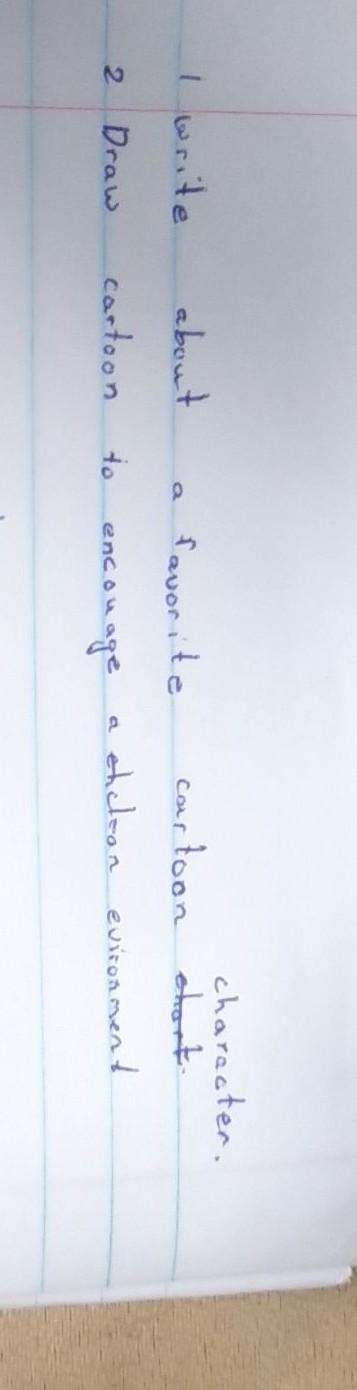 1 write about a favorite cartoon character.
2 Draw cartoon to encouage a clean evironment